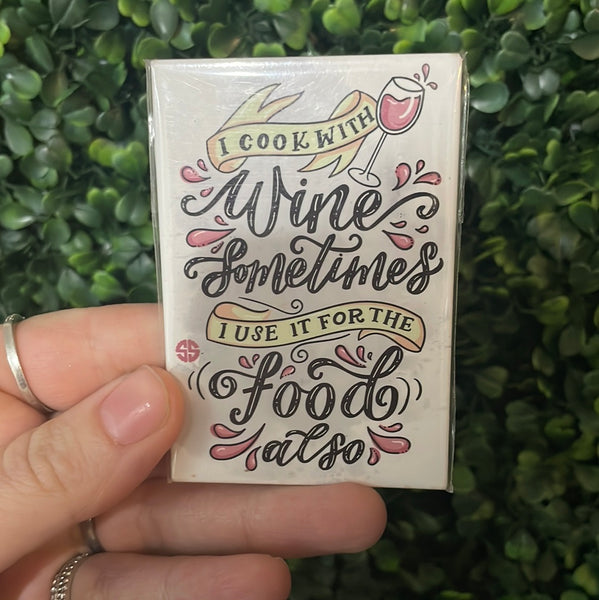 I COOK WITH
Wine
Sometimes
I USE IT FOR THE
SS
food
also